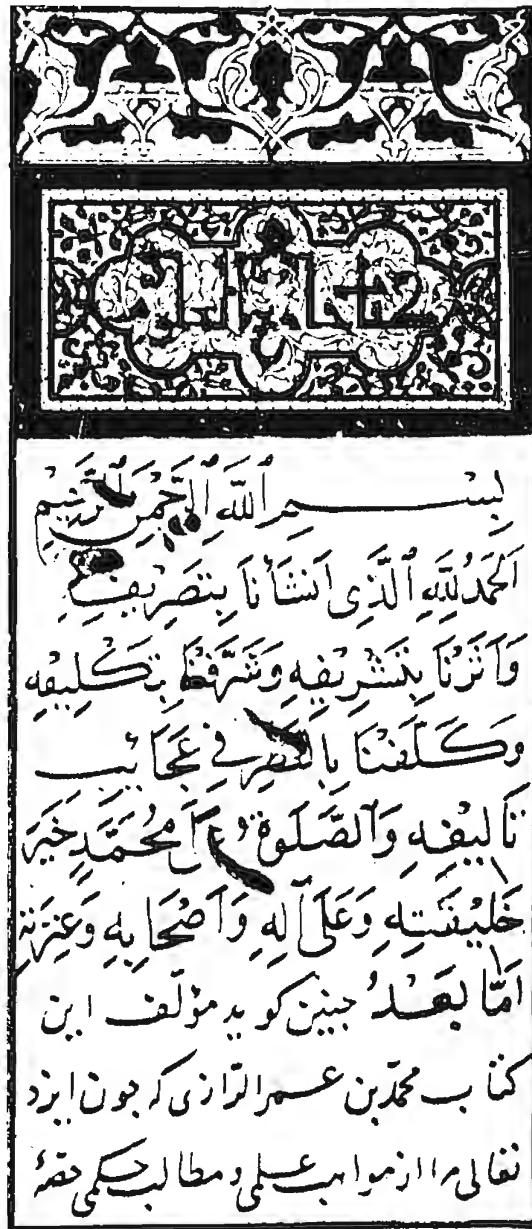 بِسْمِ ٱللَّهِ ٱلرَّحْمٰنِ ٱلرَّحِيمِ
اَلْحَمْدُ لِلَّهِ ٱلَّذِى اَنْشَأَنَا بِتَصْرِيفِهِ
وَشَرَّفَنَا بِتَكْلِيفِهِ
وَكَلَّفَنَا بِالنَّظَرِ فِي عَجَائِبِ
تَأْلِيفِهِ وَٱلصَّلَوةُ عَلَى مُحَمَّدٍ خَيْرِ
خَلِيقَتِهِ وَعَلَى آلِهِ وَاَصْحَابِهِ وَعِتْرَتِهِ
اَمَّا بَعْدُ جنين كويد مؤلّف اين
كتاب محمّد بن عمر الرّازى كه جون ايزد
تعالى مرا از مواهب علمى و مطالب حكمى حصّهٔ